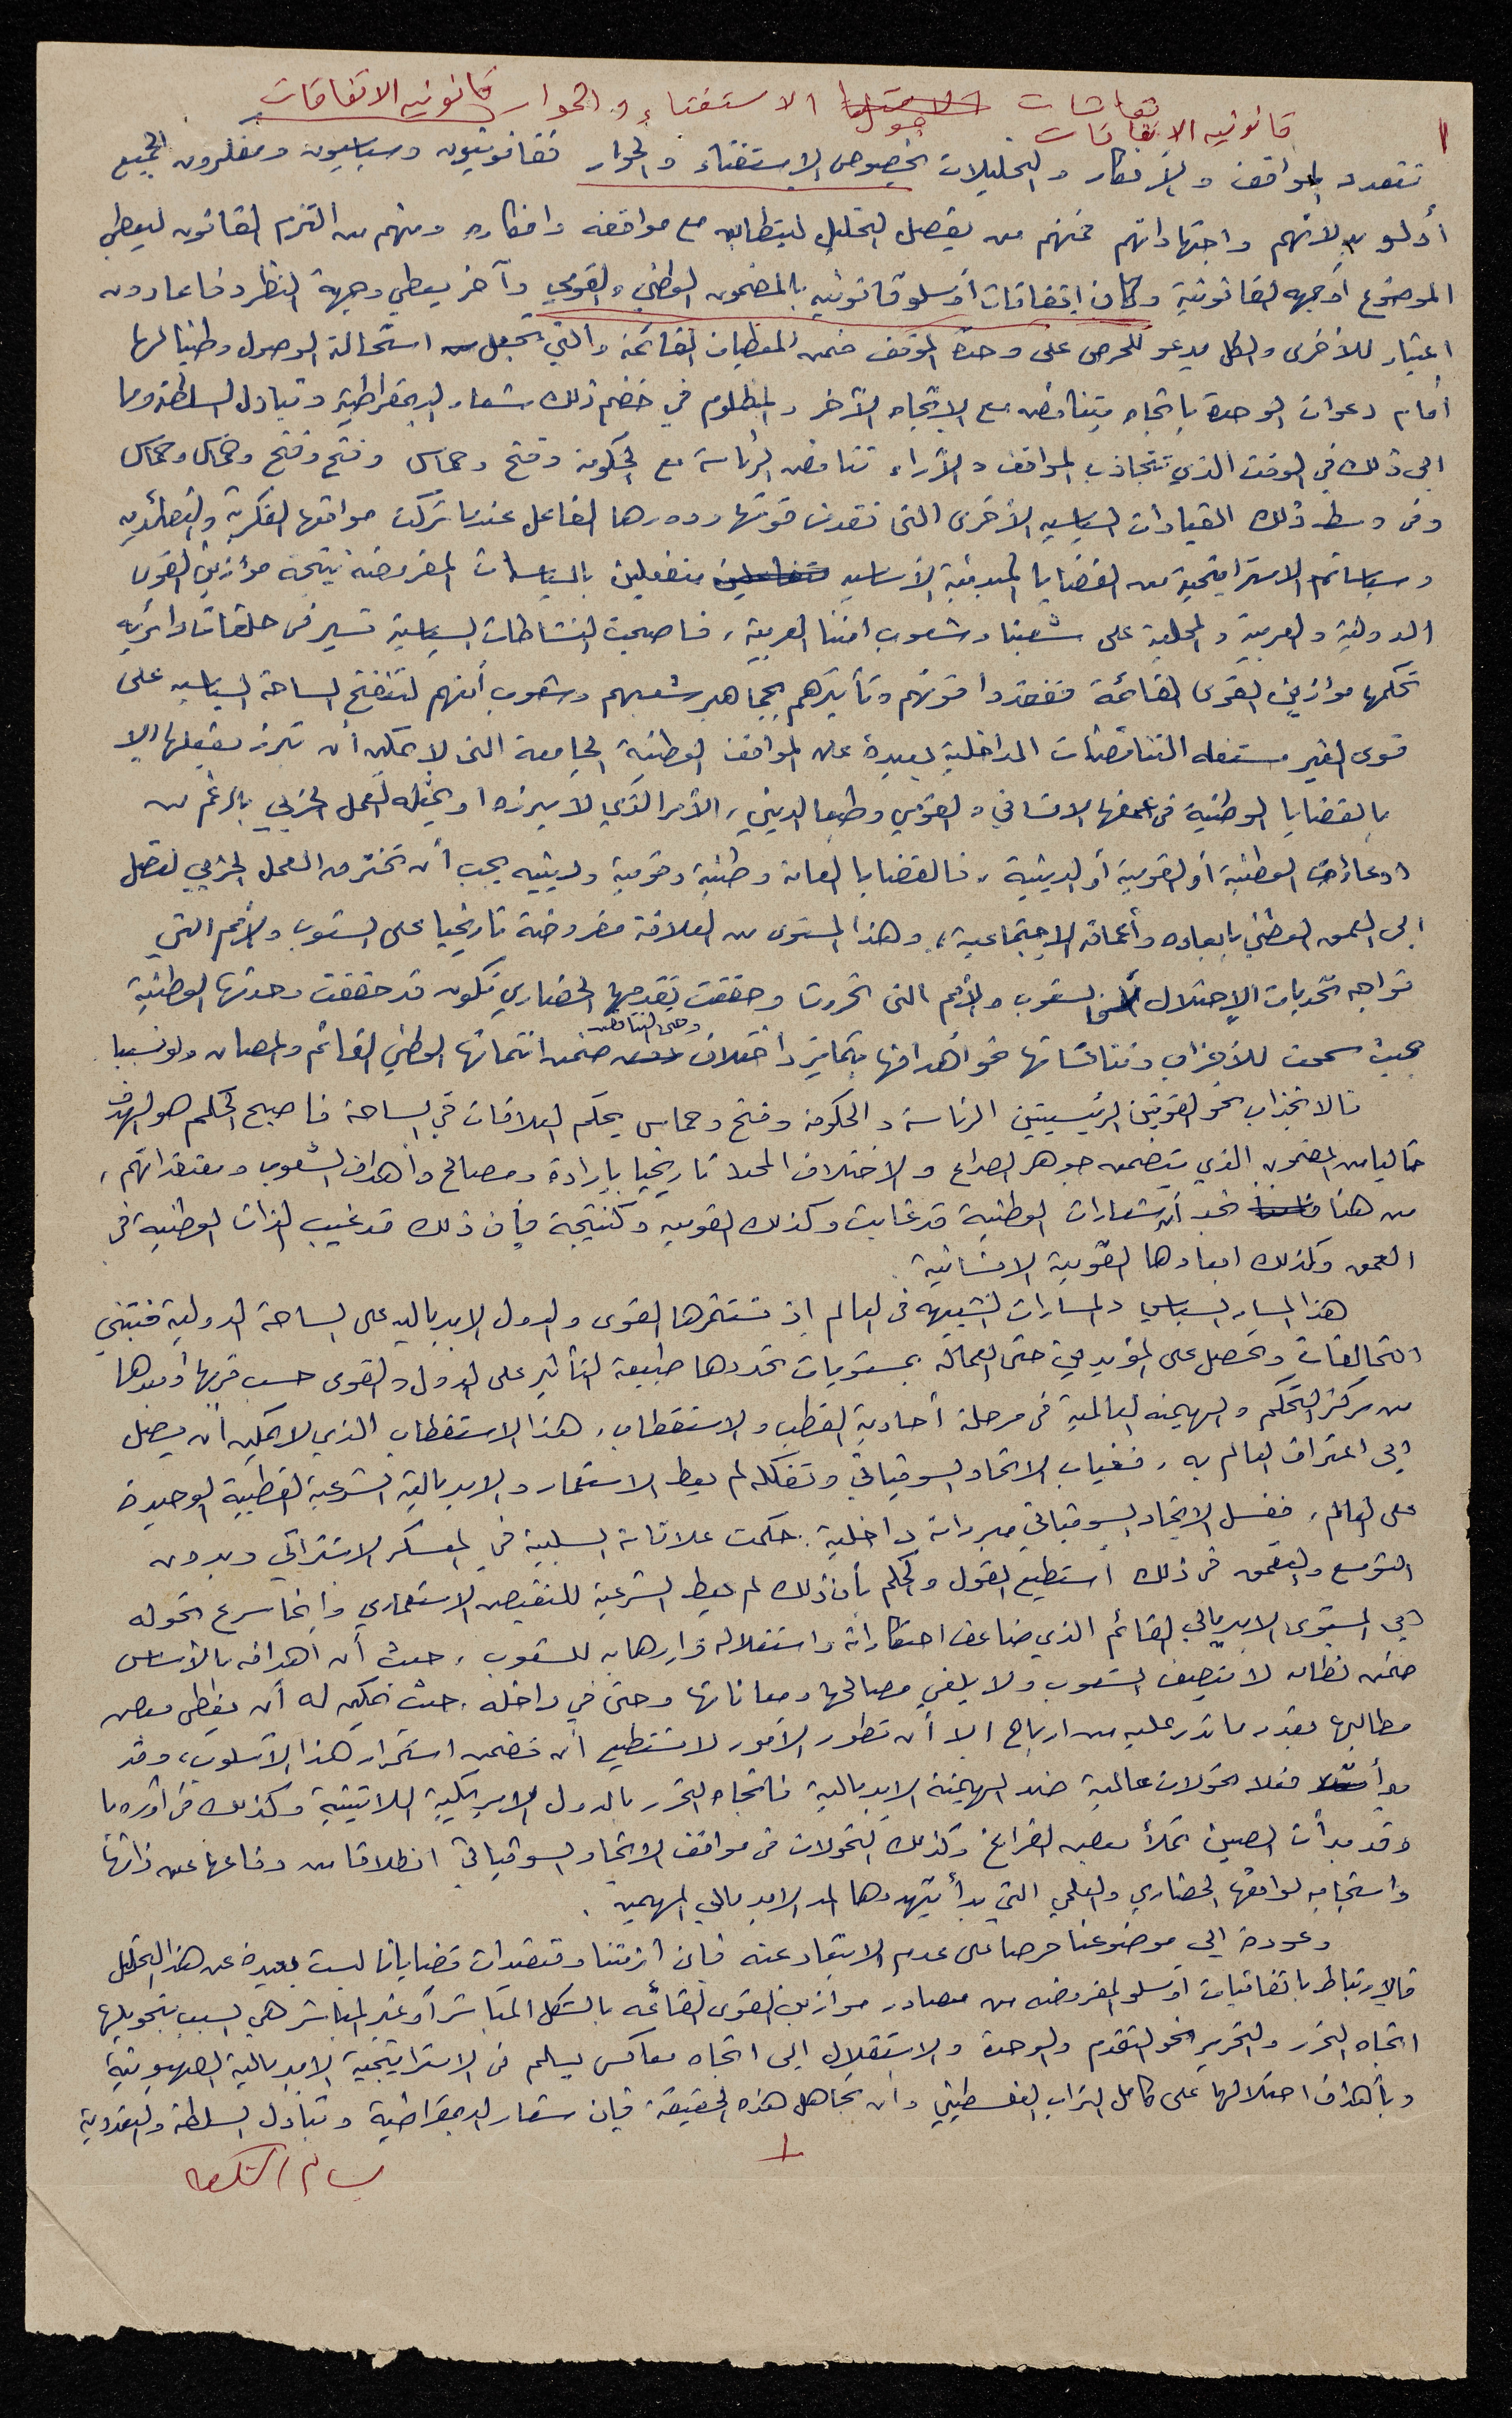 نقاشات الاستفتاء والحوار قانونية الاتفاقات
١ قانونية الاتفاقات حول
تتعدد المواقف والأفكار والتحليلات بخصوص الاستفتاء والحوار فقانونيون وسياسيون ومفكرون الجميع
أدلو بدلائهم واجتهاداتهم فمنهم من يفصل التحليل ليتطابق مع مواقفه وافكاره ومنهم من التزم القانون ليعطي
الموضوع أوجهه القانونية وكان اتفاقات أوسلو قانونيه بالمضمون الوطني والقومي وآخر يعطي وجهة النظر دفاعا دون
اعتبار للأخرى والكل يدعو للحرص على وحدة الموقف ضمن المعطيات القائمة والتي تجعل استحالة الوصول وطنيا لها
أمام دعوات الوحدة باتجاه يتناقض مع الاتجاه الآخر والمظلوم في خضم ذلك شعار الديمقراطية وتبادل السلطة وما
الى ذلك في الوقت الذي تتجاذب المواقف والأراء تناقض الرئاسة مع الحكومة وفتح وحماس وفتح وفتح وحماس وحماس
وفي وسط ذلك القيادات السياسيه الأخرى التي فقدت قوتها ودورها الفاعل عندما تركت مواقعها الفكرية والعقائدية
وسياساتهم الاستراتيجية من القضايا المبدئية الأساسيه منفعلين بالسياسات المفروضة نتيجة موازين القوى
الدولية والعربية والمحلية على شعبنا وشعوب امتنا العربية، فاصبحت النشاطات السياسية تسير في حلقات دائريه
تحكمها موازين القوى القائمة ففقدوا قوتهم وتأثيرهم بجماهير شعبهم وشعوب أمتهم لتنفتح الساحة السياسيه على
قوى الغير مستغله التناقضات الداخلية بعيدة عن المواقف الوطنية الجامعة التي لا يمكن أن تبرز بفعلها الا
بالقضايا الوطنية في عمقها الانساني والقومي وطبعا الديني، الأمر الذي لا يبرزه أو يمثله العمل الحزبي بالرغم من
ادعاءاته الوطنية أو القومية أو الدينية، فالقضايا العامه وطنية وقومية ودينيه يجب أن تخترق العمل الحزبي لتصل
الى العمق الوطني بابعاده وأعماقه الاجتماعية، وهذا المستوى من العلاقة مفروضة تاريخيا على الشعوب والأمم التي
تواجه تحديات الاحتلال الشعوب والأمم التي تحررت وحققت تقدمها الحضاري تكون قد حققت وحدتها الوطنية
بحيث سمحت للأحزاب ومنافساتها نحو أهدافها بتمايز واختلاف وحتى التناقض ضمن انتمائها الوطني القائم والمصان ولو نسبيا
فالانجذاب نحو القوتين الرئيسيتين الرئاسة والحكومة وفتح وحماس يحكم العلاقات في الساحة فاصبح الحكم هو الهدف
خاليا من المضمون الذي يتضمن جوهر الصراع والاختلاف المحدد تاريخيا بارادة ومصالح وأهداف الشعوب ومعتقداتهم،
من هنا نجد أن شعارات الوطنية قد غابت وكذلك القوميه وكنتيجة فإن ذلك قد غيب الذات الوطنية في
العمق وكذلك ابعادها القومية الانسانية.
هذا المسار السياسي والمسارات الشبيهه في العالم اذ تستثمرها القوى والدول الامبرياليه على الساحة الدولية فتبني
التحالفات وتحصل على المؤيدين حتى العماله بمستويات تحددها طبيعة التأثير على الدول والقوى حسب قربها أو بعدها
من مركز التحكم والهيمنه العالمية في مرحلة أحادية القطب والاستقطاب، هذا الاستقطاب الذي لا يمكن أن يصل
الى اعتراف العالم به، فغياب الاتحاد السوفياتي وتفككه لم يعط الاستعمار والامبريالية الشرعية القطبية الوحيدة
على العالم، ففشل الاتحاد السوفياتي مبرراته داخلية حكمت علاقاته السلبية في المعسكر الاشتراكي وبدون
التوسع والتعمق في ذلك أستطيع القول والحكم بأن ذلك لم يعط الشرعية للنقيض الاستعماري وانما سرع تحوله
الى المستوى الامبريالي القائم الذي ضاعف احتكاراته واستغلاله وارهابه للشعوب، حيث أن أهدافه بالأساس
ضمن نظامه لا تنصف الشعوب ولا يلغي مصالحها ومعاناتها وحتى في داخله، حيث يمكن له أن يغطي بعض
مطالبها بقدر ما تدر عليه من ارباح الا أن تطور الأمور لا تستطيع أن تضمن استمرار هذا الأسلوب، وقد
بدأت فعلا تحولات عالمية ضد الهيمنة الامبريالية فاتجاه التحرر بالدول الامريكية اللاتينية وكذلك في أوروبا
وقد بدأت الصين تملأ بعض الفراغ وكذلك التحولات في مواقف الاتحاد السوفياتي انطلاقا من دفاعها عن ذاتها
واستجابه لواقعها الحضاري والعلمي التي بدأ يتهددها المد الامبريالي المهيمن.
وعودة الى موضوعنا حرصا على عدم الابتعاد عنه فإن أزمتنا وتعقيدات قضايانا ليست بعيدة عن هذا التحليل
فالارتباط باتفاقيات أوسلو المفروضه من مصادر موازين القوى القائمه بالشكل المباشر أو غير المباشر هي السبب بتحويلها
اتجاه التحرر والتحرير نحو التقدم والوحدة والاستقلال الى اتجاه معاكس يسلم في الاستراتيجية الامبريالية الصهيونية
وبأهداف احتلالها على كامل التراب الفلسطيني وان تجاهل هذه الحقيقة فإن شعار الديمقراطية وتبادل السلطة والتعددية
١
بسام الشكعه